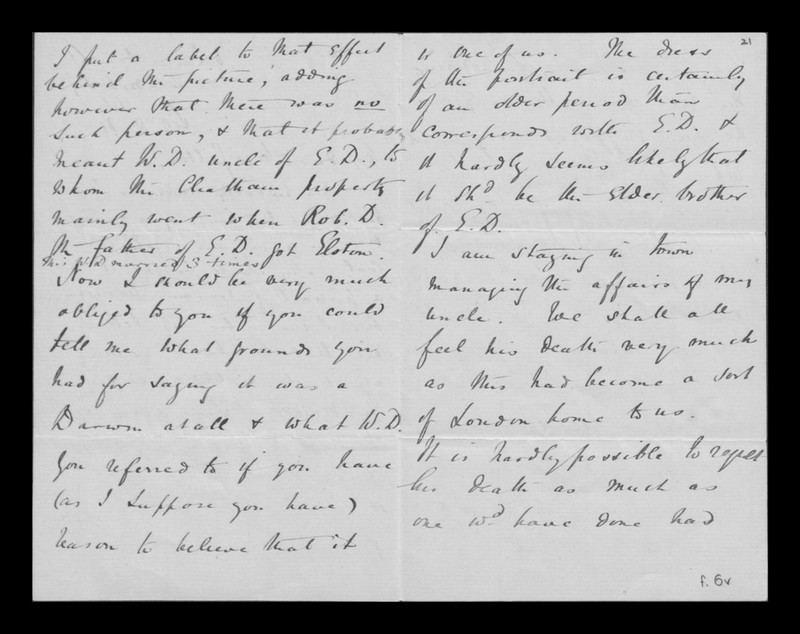 I put a label to that effect
behind the picture, adding
however that there was no
such person, & that it probably
meant W.D. uncle of E.D., to
whom the Cleatham property
mainly went when Rob. D.
the father of E.D. got Elston.
This W.D married 3 times
Now I should be very much
obliged to you if you could
tell me what grounds you
had for saying it was a
Darwin at all & what W.D.
you referred to if you have
(as I suppose you have)
reason to believe that it
21
is one of us. The dress
of the portrait is certainly
of an older period than
corresponds with E.D. &
it hardly seems likely that
it shd be the elder brother
of E.D.
I am staying in town
managing the affairs of my
uncle. We shall all
feel his death very much
as this had become a sort
of London home to us.
It is hardly possible to regret
his death as much as
one wd have done had
f. 6v